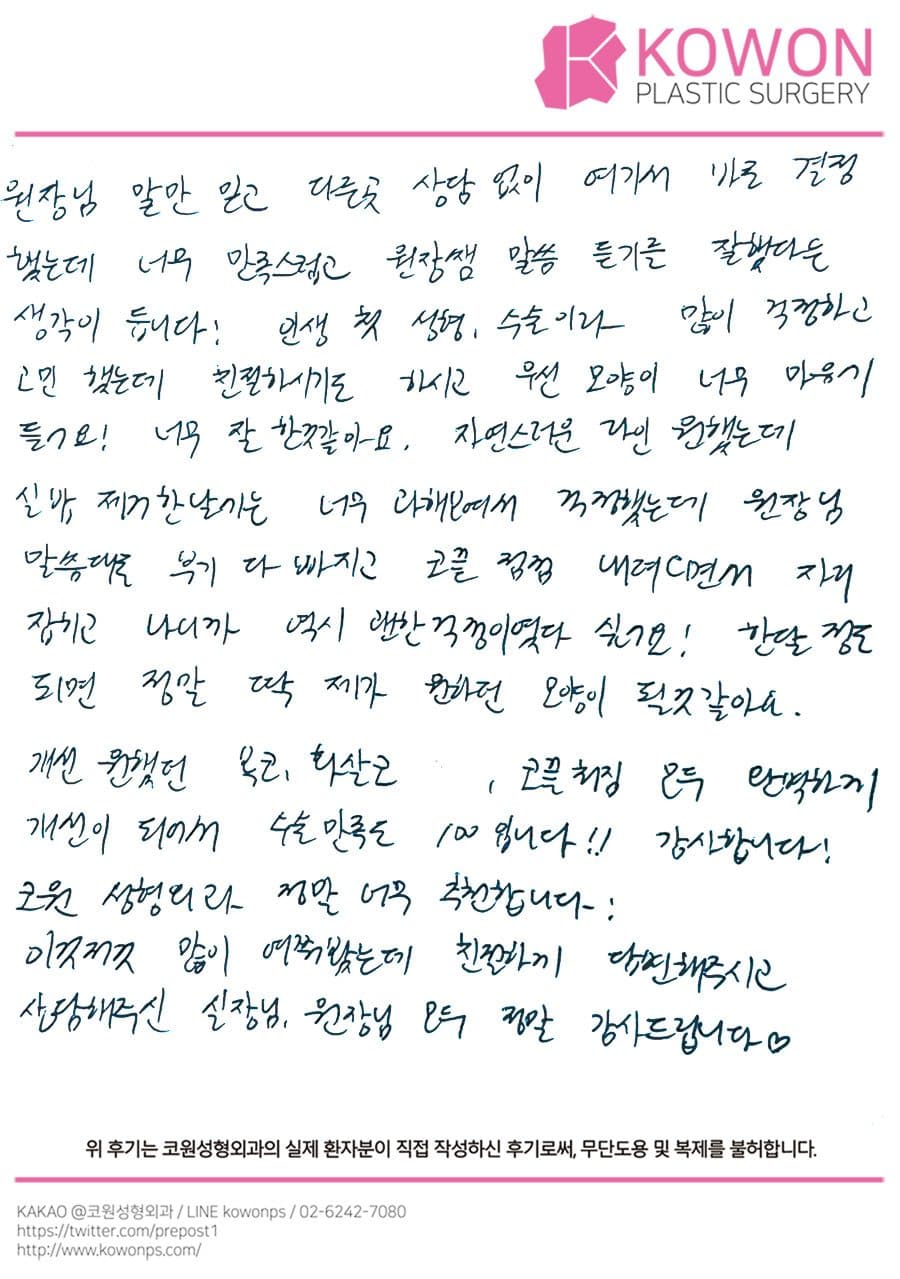 KOWON
PLASTIC SURGERY
원장님 말만 믿고 다른곳 상담 없이 여기서 바로 결정
했는데 너무 만족스럽고 원장쌤 말씀 듣기를 잘했다는
생각이 듭니다! 인생 첫 성형, 수술이라 많이 걱정하고
고민 했는데 친절하시기도 하시고 우선 모양이 너무 마음에
들어요! 너무 잘 한것같아요. 자연스러운 라인 원했는데
실밥 제거한날에는 너무 과해보여서 걱정했는데 원장님
말씀대로 부기 다 빠지고 코끝 점점 내려오면서 자리
잡히고 나니까 역시 괜한걱정이였다 싶어요! 한달 정도
되면 정말 딱 제가 원하던 모양이 될것같아요.
개선 원했던 복코, 화살코 , 코끝 휘짐 모두 완벽하게
개선이 되어서 수술 만족도 100 입니다!! 감사합니다!
코원 성형외과 정말 너무 추천합니다!
이것저것 많이 여쭤봤는데 친절하게 답변해주시고
상담해주신 실장님, 원장님 모두 정말 감사드립니다♡
위 후기는 코원성형외과의 실제 환자분이 직접 작성하신 후기로써, 무단도용 및 복제를 불허합니다.
KAKAO @코원성형외과 / LINE kowonps / 02-6242-7080
https://twitter.com/prepost1
http://www.kowonps.com/